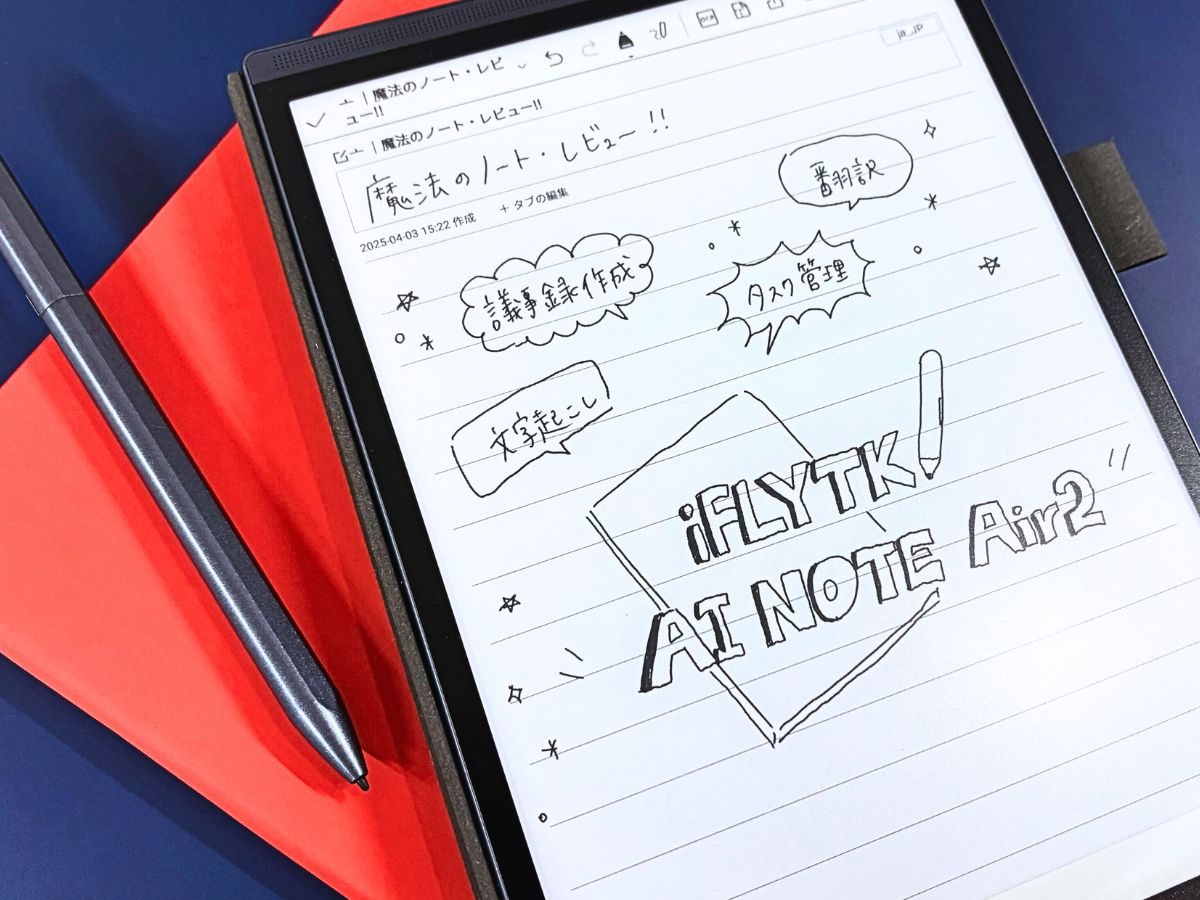 亠 | 魔法のノート・レビ
ュー!!
OCR
亠 | 魔法のノート・レビュー!!
ja_JP
魔法のノート・レビュー!!
2025-04-03 15:22 作成 + タブの編集
翻訳
議事録作成
タスク管理
文字起こし
iFLYTK
AI NOTE Air2